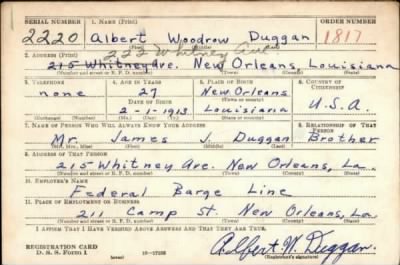 SERIAL NUMBER 1. NAME (Print) ORDER NUMBER
2220 Albert Woodrow Duggan 1817
(First) (Middle) (Last)
222 Whitney Ave.
2. ADDRESS (Print)
215 Whitney Ave. New Orleans, Louisiana
(Number and street or R. F. D. number) (Town) (County) (State)
3. TELEPHONE 4. AGE IN YEARS 5. PLACE OF BIRTH 6. COUNTRY OF CITIZENSHIP
none 27 New Orleans
DATE OF BIRTH (Town or county)
2-1-1913 Louisiana U.S.A.
(Exchange) (Number) (Mo.) (Day) (Yr.) (State or country)
7. NAME OF PERSON WHO WILL ALWAYS KNOW YOUR ADDRESS 8. RELATIONSHIP OF THAT PERSON
Mr James J. Duggan Brother
(Mr., Mrs., Miss) (First) (Middle) (Last)
9. ADDRESS OF THAT PERSON
215 Whitney Ave. New Orleans, La.
(Number and street or R. F. D. number) (Town) (County) (State)
10. EMPLOYER'S NAME
Federal Barge Line
11. PLACE OF EMPLOYMENT OR BUSINESS
211 Camp St. New Orleans, La.
(Number and street or R. F. D. number) (Town) (County) (State)
I AFFIRM THAT I HAVE VERIFIED ABOVE ANSWERS AND THAT THEY ARE TRUE.
REGISTRATION CARD
D. S. S. Form 1 Albert W. Duggan
(Registrant's signature)